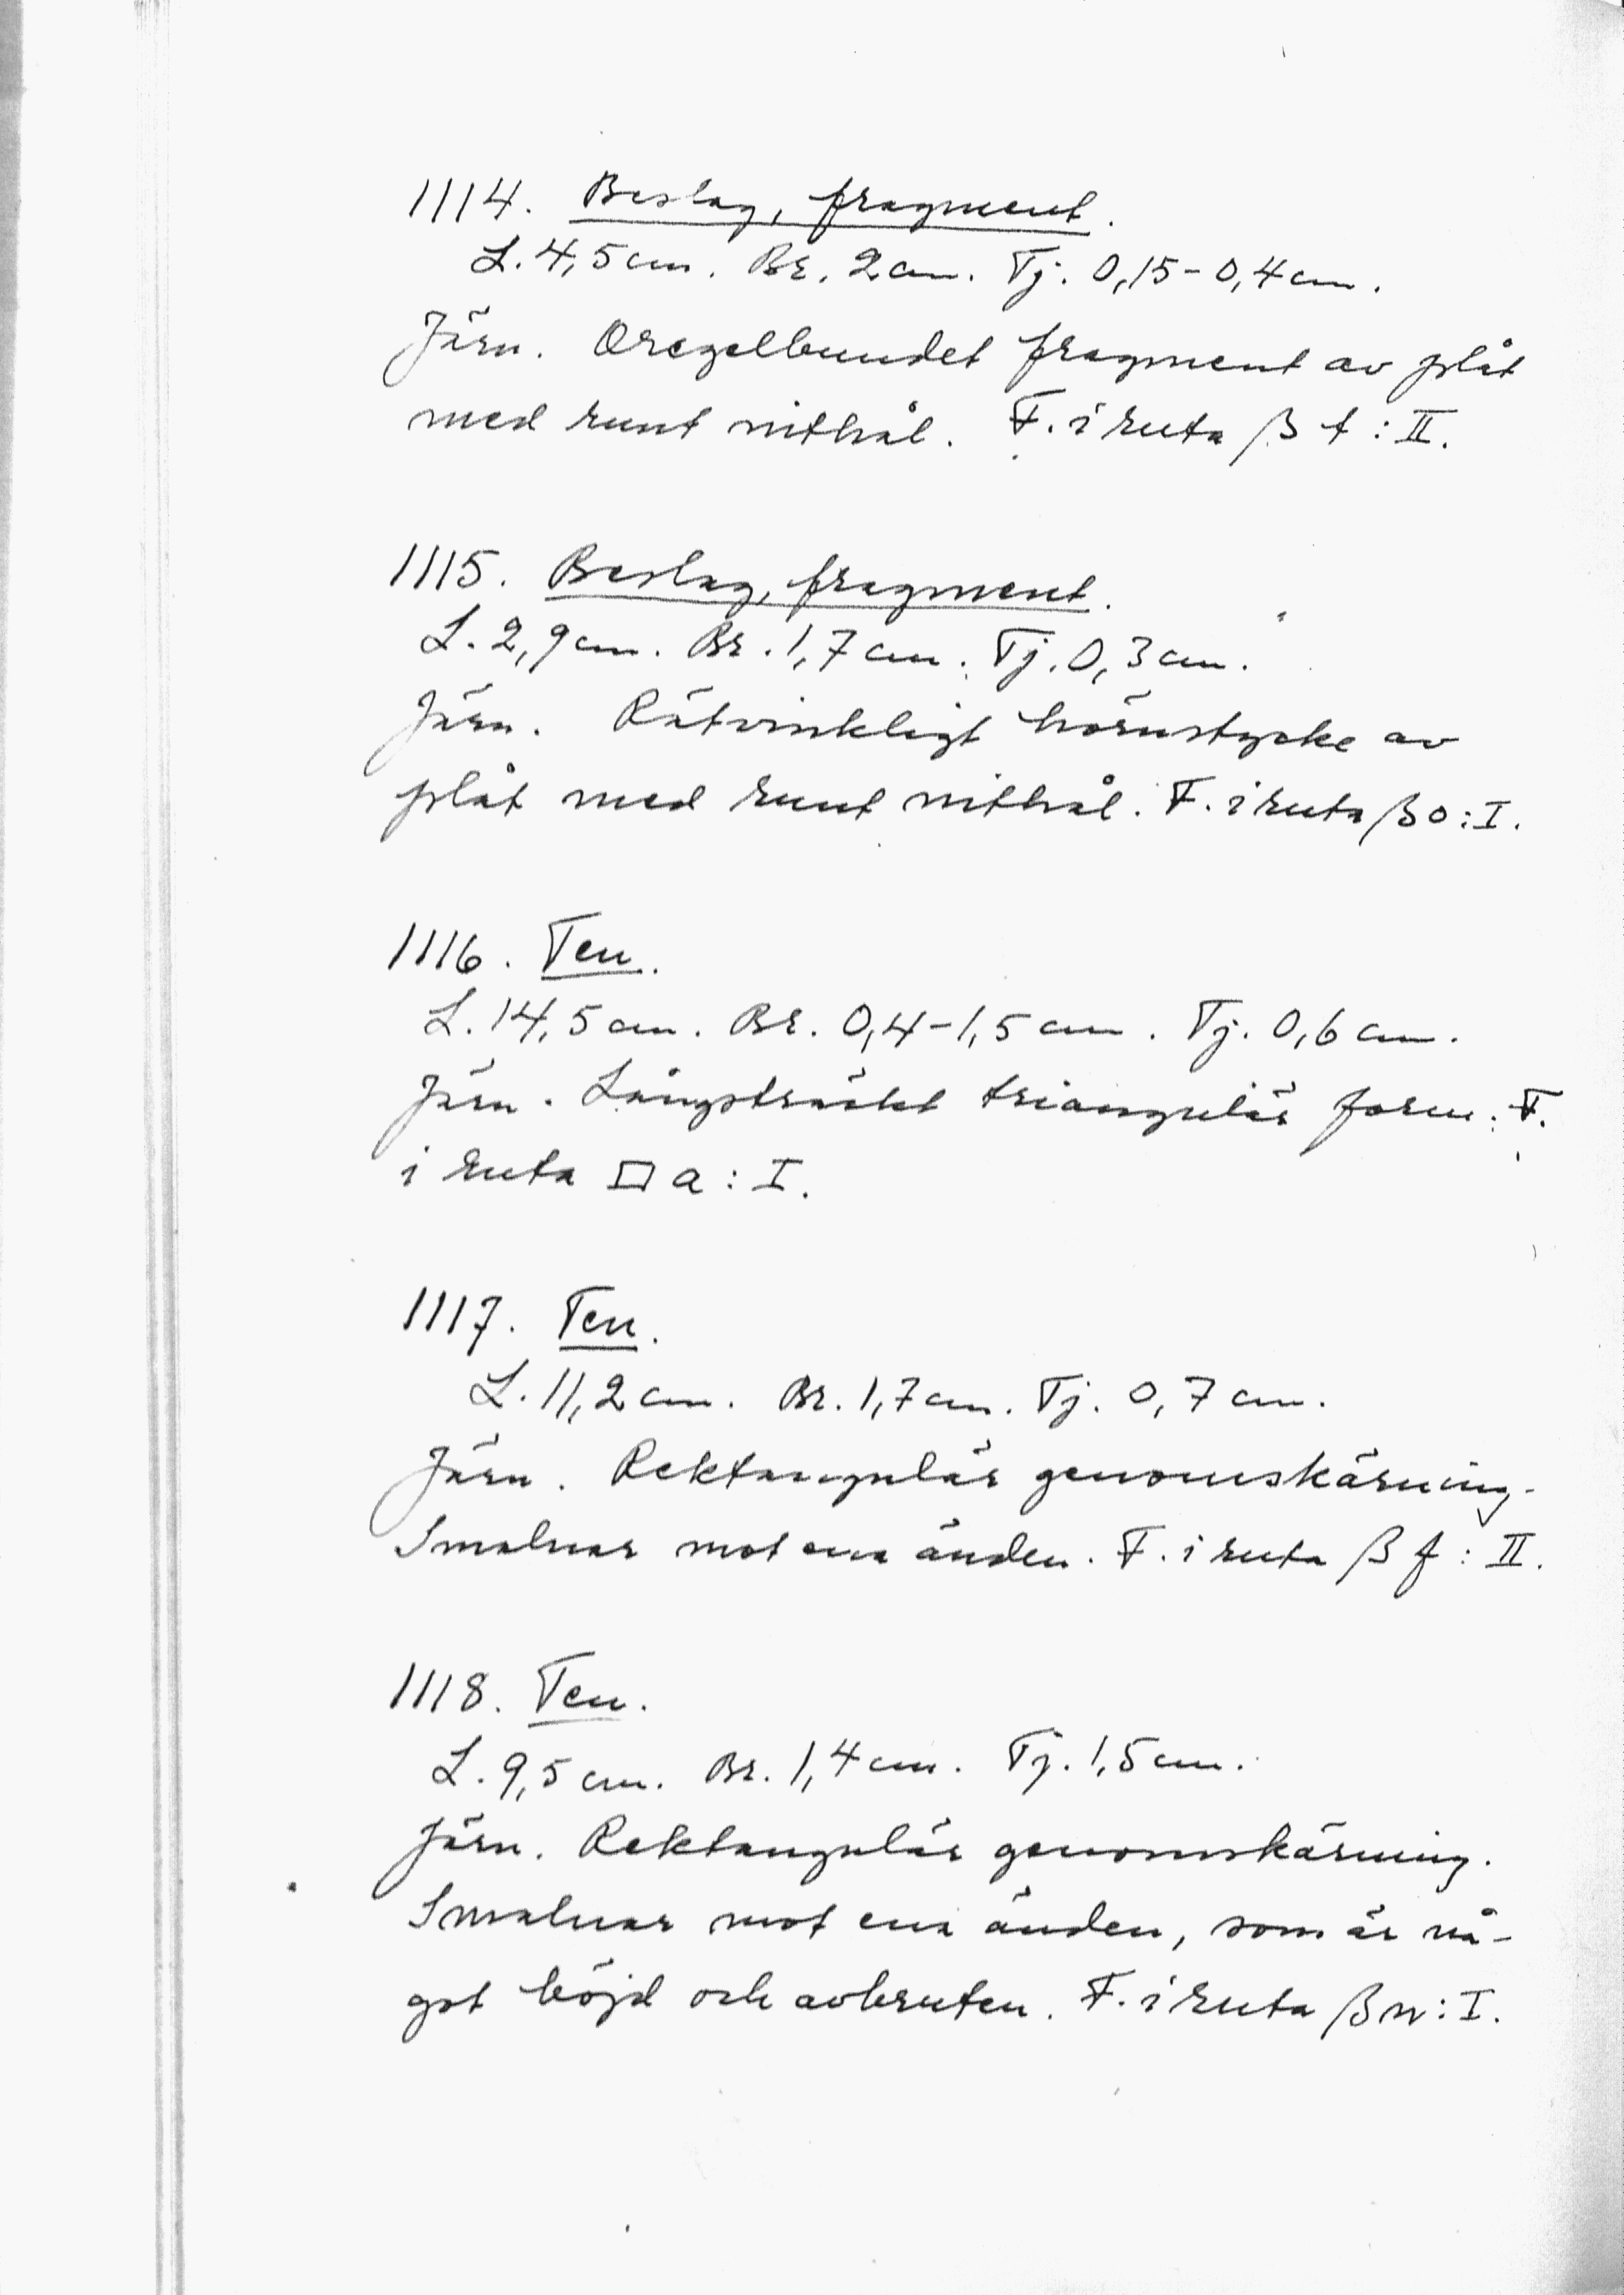 1114. Beslag, fragment.
L. 4,5 cm. Br. 2 cm. Tj. 0,15-0,4 cm.
Järn. Oregelbundet fragment av plåt
med runt nithål. F. i ruta β t : II.
1115. Beslag, fragment.
L. 2,9 cm. Br. 1,7 cm. Tj. 0,3 cm.
Järn. Rätvinkligt hörnstycke av
plåt med runt nithål. F. i ruta β o : I.
1116. Ten.
L. 14,5 cm. Br. 0,4-1,5 cm. Tj. 0,6 cm.
Järn. Långsträckt triangulär form. F.
i ruta □ a : I.
1117. Ten.
L. 11,2 cm. Br. 1,7 cm. Tj. 0,7 cm.
Järn. Rektangulär genomskärning.
Smalnar mot ena änden. F. i ruta β f : II.
1118. Ten.
L. 9,5 cm. Br. 1,4 cm. Tj. 1,5 cm.
Järn. Rektangulär genomskärning.
Smalnar mot ena änden, som är nå-
got böjd och avbruten. F. i ruta β n : I.